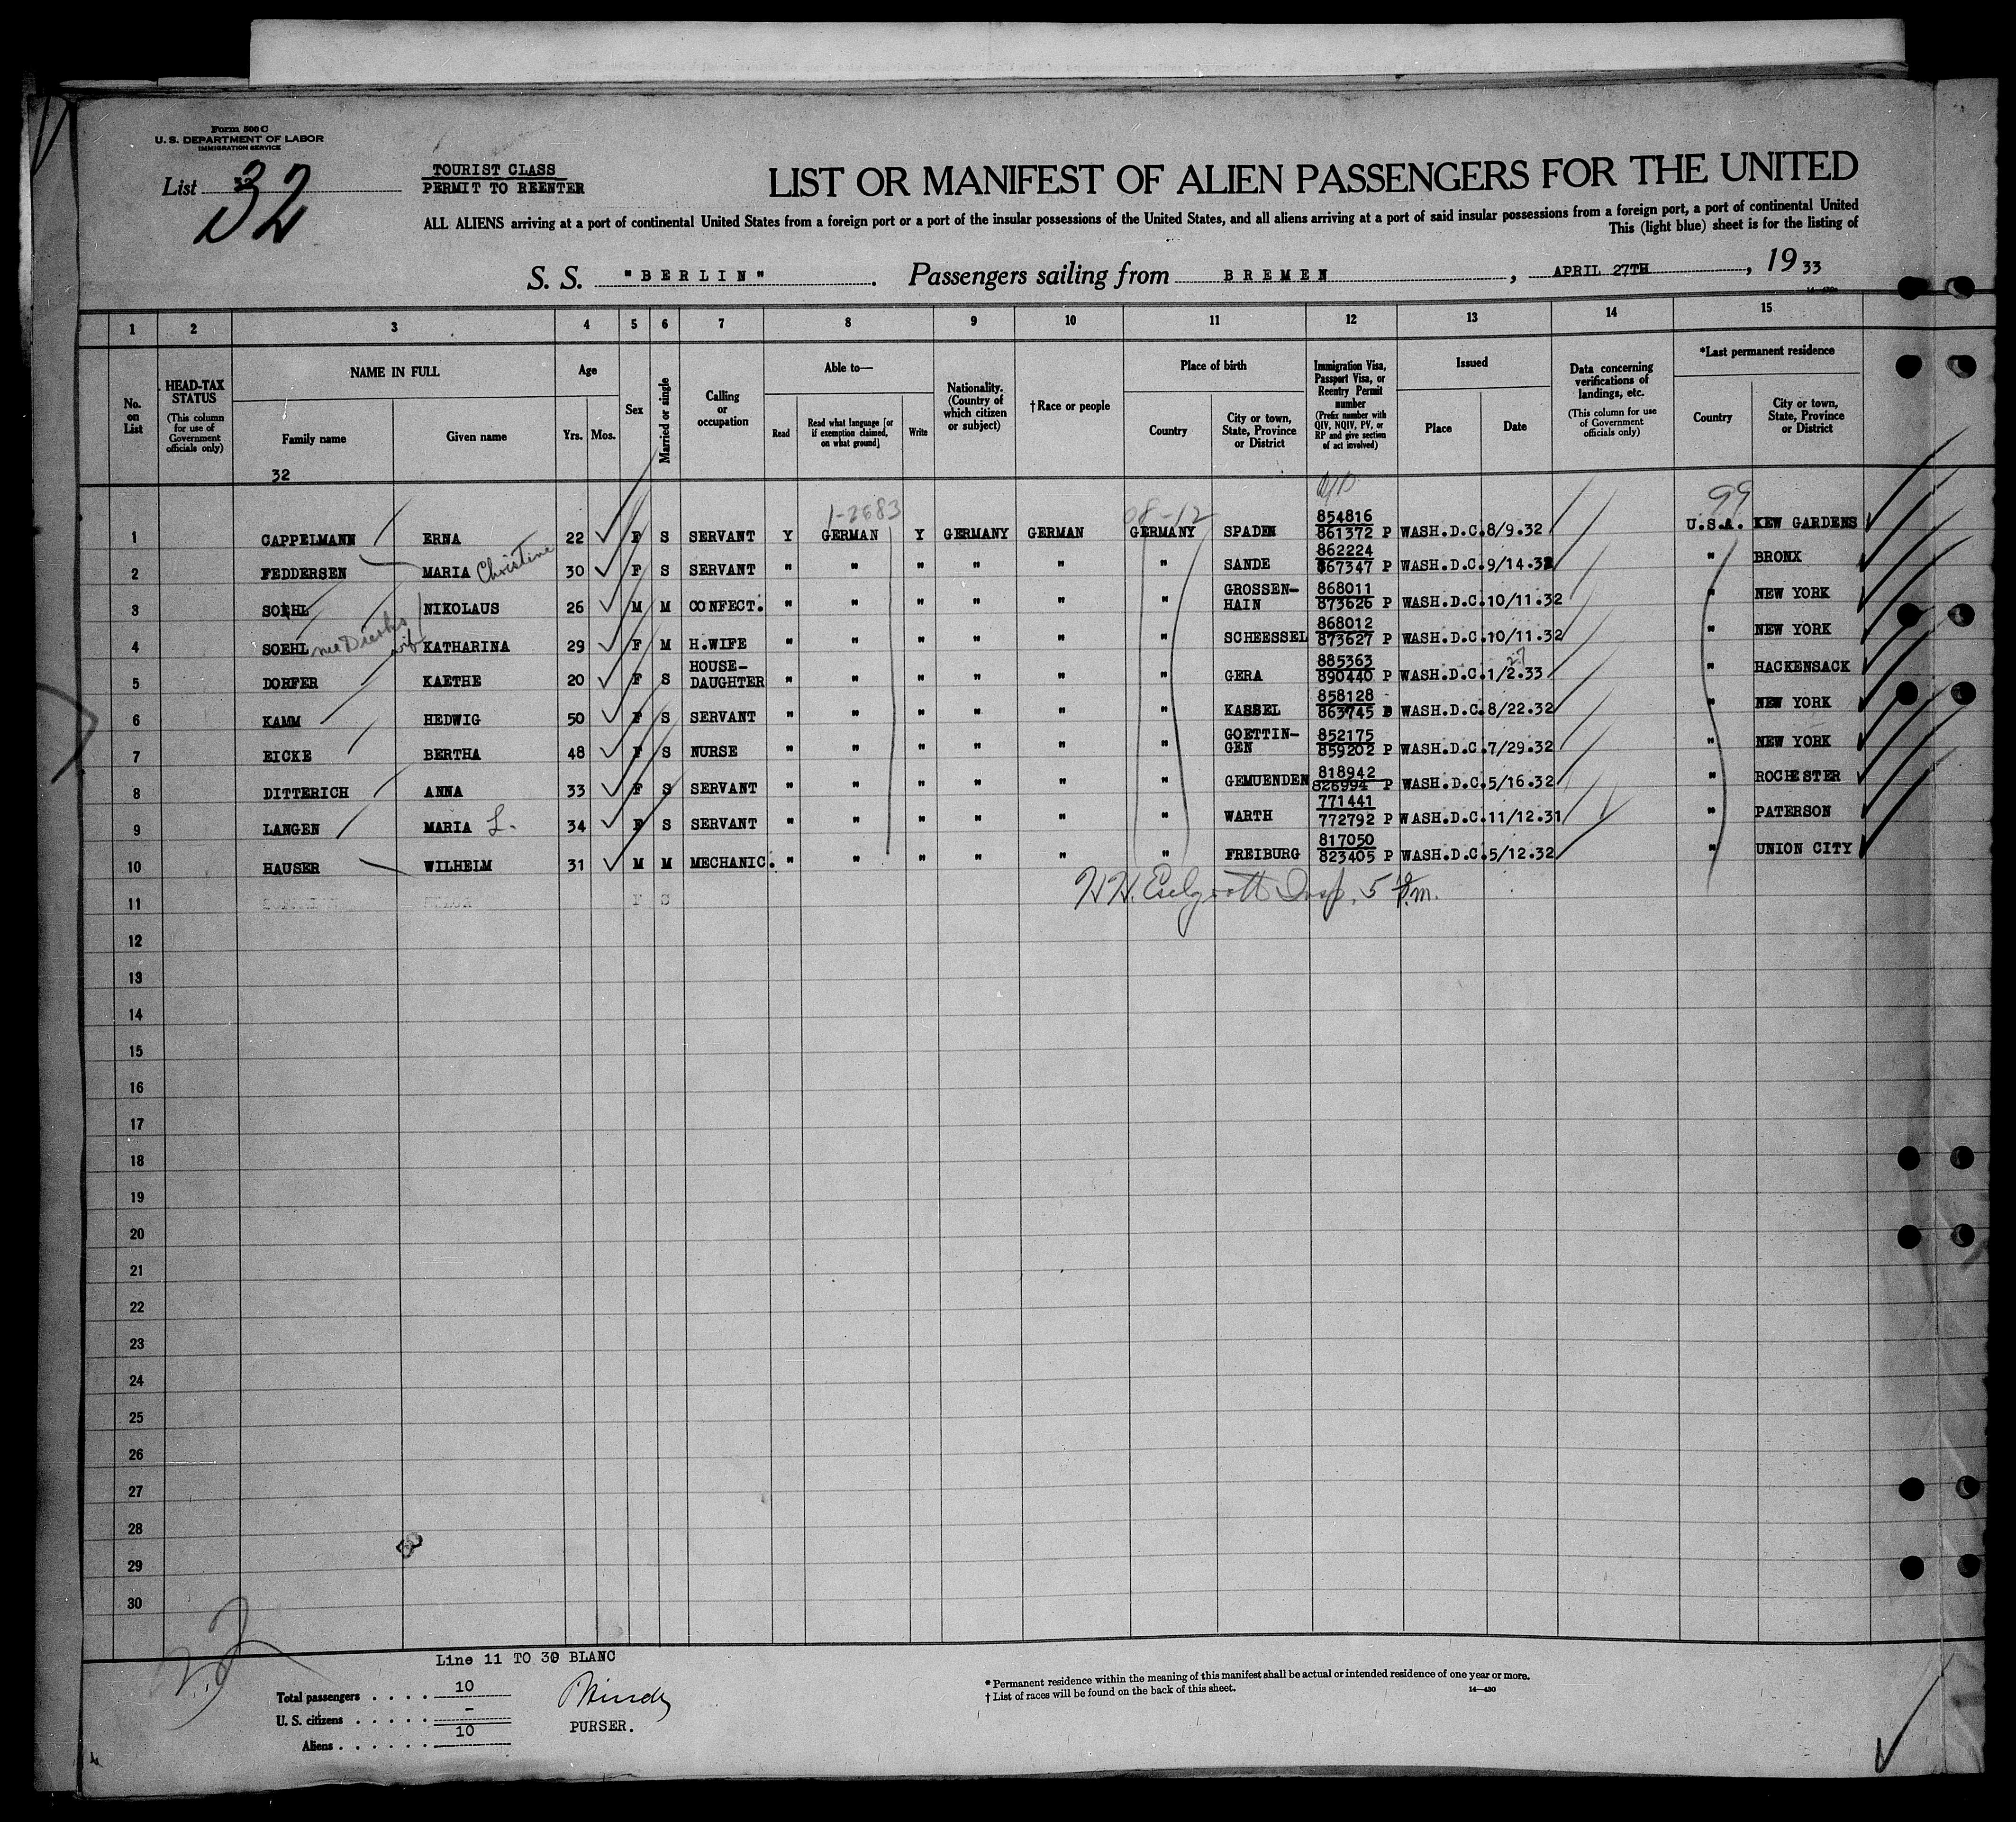 Form 500 C
U. S. DEPARTMENT OF LABOR
IMMIGRATION SERVICE
List 32
32
TOURIST CLASS
PERMIT TO REENTER
LIST OR MANIFEST OF ALIEN PASSENGERS FOR THE UNITED
ALL ALIENS arriving at a port of continental United States from a foreign port or a port of the insular possessions of the United States, and all aliens arriving at a port of said insular possessions from a foreign port, a port of continental United
This (light blue) sheet is for the listing of
S. S. "BERLIN". Passengers sailing from BREMEN, APRIL 27TH, 1933
1 2 3 4 5 6 7 8 9 10 11 12 13 14 15
No. on List
HEAD-TAX STATUS (This column for use of Government officials only)
NAME IN FULL
Family name
Given name
Age
Yrs. Mos.
Sex
Married or single
Calling or occupation
Able to—
Read
Read what language [or if exemption claimed, on what ground]
Write
Nationality. (Country of which citizen or subject)
†Race or people
Place of birth
Country
City or town, State, Province or District
Immigration Visa, Passport Visa, or Reentry Permit number (Prefix number with QIV, NQIV, PV, or RP and give section of act involved)
Issued
Place
Date
Data concerning verifications of landings, etc. (This column for use of Government officials only)
*Last permanent residence
Country
City or town, State, Province or District
32
1-3683
08-12
99
1 CAPPELMANN ERNA 22 F S SERVANT Y GERMAN Y GERMANY GERMAN GERMANY SPADEN 854816 861372 P WASH.D.C. 8/9.32 U.S.A. KEW GARDENS
2 FEDDERSEN MARIA Christine 30 F S SERVANT " " " " " " SANDE 862224 867347 P WASH.D.C. 9/14.32 " BRONX
3 SOEHL NIKOLAUS 26 M M CONFECT. " " " " " " GROSSEN-HAIN 868011 873626 P WASH.D.C. 10/11.32 " NEW YORK
4 SOEHL nee wife KATHARINA 29 F M H.WIFE " " " " " " SCHEESSEL 868012 873627 P WASH.D.C. 10/11.32 " NEW YORK
5 DORFER KAETHE 20 F S HOUSE-DAUGHTER " " " " " " GERA 885363 890440 P WASH.D.C. 1/2.33 27 " HACKENSACK
6 KAMM HEDWIG 50 F S SERVANT " " " " " " KASSEL 858128 863745 P WASH.D.C. 8/22.32 " NEW YORK
7 EICKE BERTHA 48 F S NURSE " " " " " " GOETTIN-GEN 852175 859202 P WASH.D.C. 7/29.32 " NEW YORK
8 DITTERICH ANNA 33 F S SERVANT " " " " " " GEMUENDEN 818942 826994 P WASH.D.C. 5/16.32 " ROCHESTER
9 LANGEN MARIA L. 34 F S SERVANT " " " " " " WARTH 771441 772792 P WASH.D.C. 11/12.31 " PATERSON
10 HAUSER WILHELM 31 M M MECHANIC. " " " " " " FREIBURG 817050 823405 P WASH.D.C. 5/12.32 " UNION CITY
11 F S
Insp. 5 P.m.
12
13
14
15
16
17
18
19
20
21
22
23
24
25
26
27
28
29
30
Line 11 TO 30 BLANC
Total passengers . . . . 10
U. S. citizens . . . . . –
Aliens . . . . . . 10
PURSER.
* Permanent residence within the meaning of this manifest shall be actual or intended residence of one year or more.
† List of races will be found on the back of this sheet.
14—430